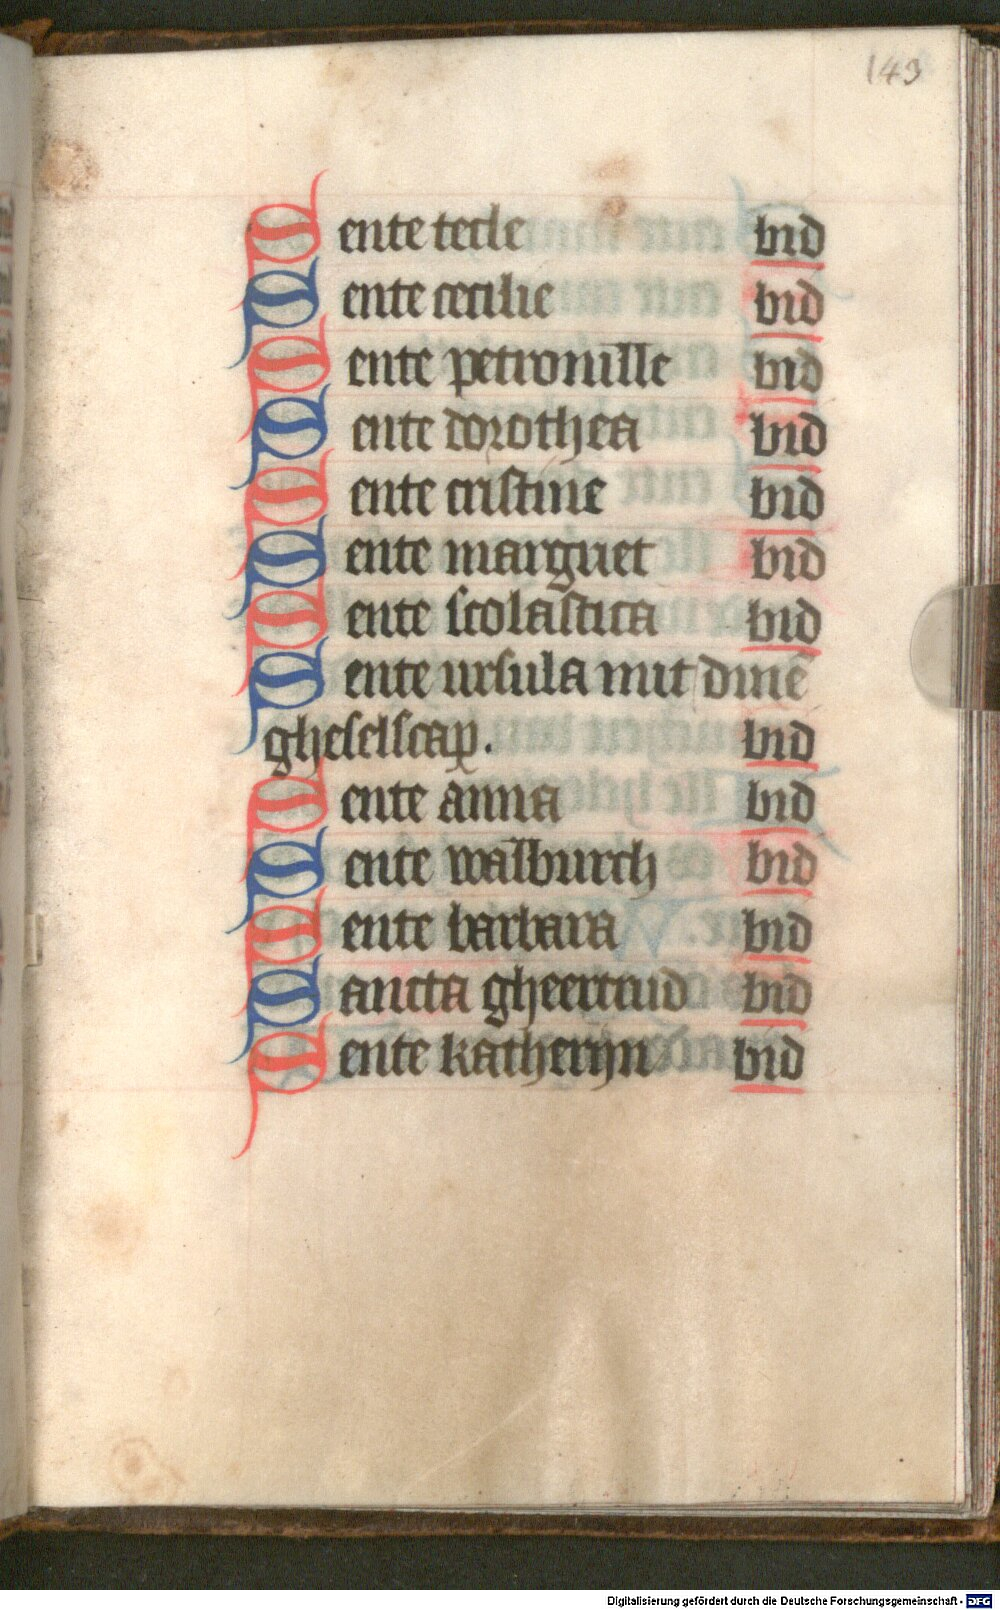 143
Sente tecle bid
Sente cecilie bid
Sente petronille bid
Sente dorothea bid
Sente cristine bid
Sente marguet bid
Sente scolastica bid
Sente ursula mit dinē
gheselscap. bid
Sente anna bid
Sente walburch bid
Sente barbara bid
Sancta gheertrud bid
Sente katherijn bid
Digitalisierung gefördert durch die Deutsche Forschungsgemeinschaft - DFG